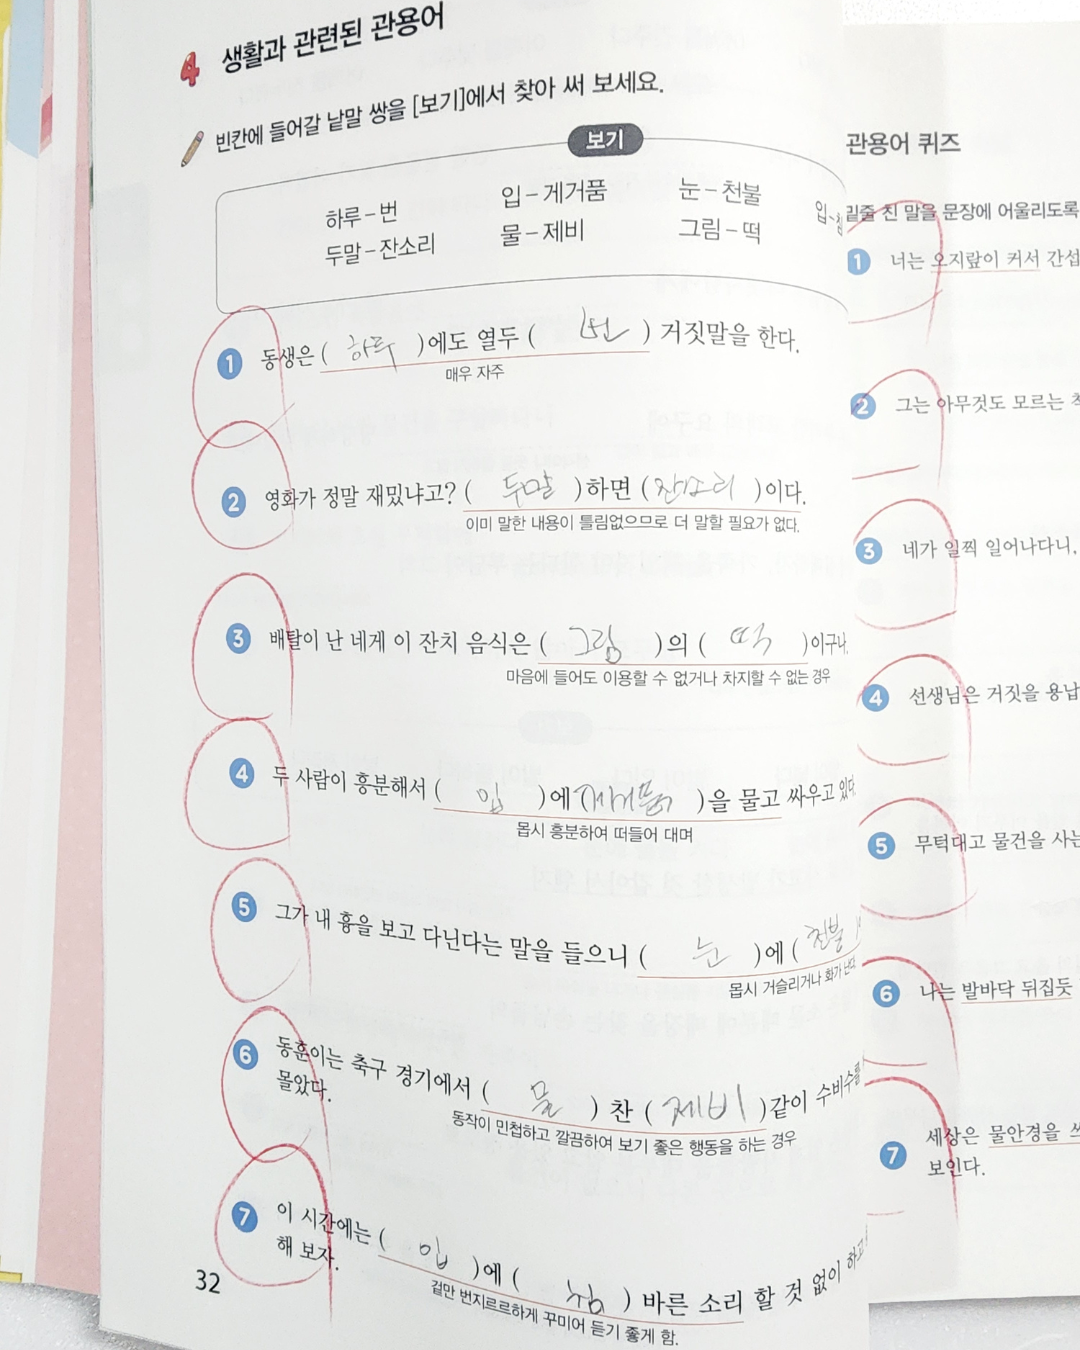 4 생활과 관련된 관용어
빈칸에 들어갈 낱말 쌍을 [보기]에서 찾아 써 보세요.
보기
하루 – 번 입 – 게거품 눈 – 천불 입 –
두말 – 잔소리 물 – 제비 그림 – 떡
1 동생은 ( 하루 )에도 열두 ( 번 ) 거짓말을 한다.
매우 자주
2 영화가 정말 재밌냐고? ( 두말 )하면 ( 잔소리 )이다.
이미 말한 내용이 틀림없으므로 더 말할 필요가 없다.
3 배탈이 난 네게 이 잔치 음식은 ( 그림 )의 ( 떡 )이구나.
마음에 들어도 이용할 수 없거나 차지할 수 없는 경우
4 두 사람이 흥분해서 ( 입 )에 ( 게거품 )을 물고 싸우고 있다.
몹시 흥분하여 떠들어 대며
5 그가 내 흉을 보고 다닌다는 말을 들으니 ( 눈 )에 ( 천불
몹시 거슬리거나 화가 난다.
6 동훈이는 축구 경기에서 ( 물 ) 찬 ( 제비 )같이 수비수를
몰았다.
동작이 민첩하고 깔끔하여 보기 좋은 행동을 하는 경우
7 이 시간에는 ( 입 )에 ( ) 바른 소리 할 것 없이 하고
해 보자.
겉만 번지르르하게 꾸미어 듣기 좋게 함.
32
관용어 퀴즈
밑줄 친 말을 문장에 어울리도록
1 너는 오지랖이 커서 간섭
2 그는 아무것도 모르는 척
3 네가 일찍 일어나다니,
4 선생님은 거짓을 용납
5 무턱대고 물건을 사는
6 나는 발바닥 뒤집듯
7 세상은 물안경을 쓰
보인다.